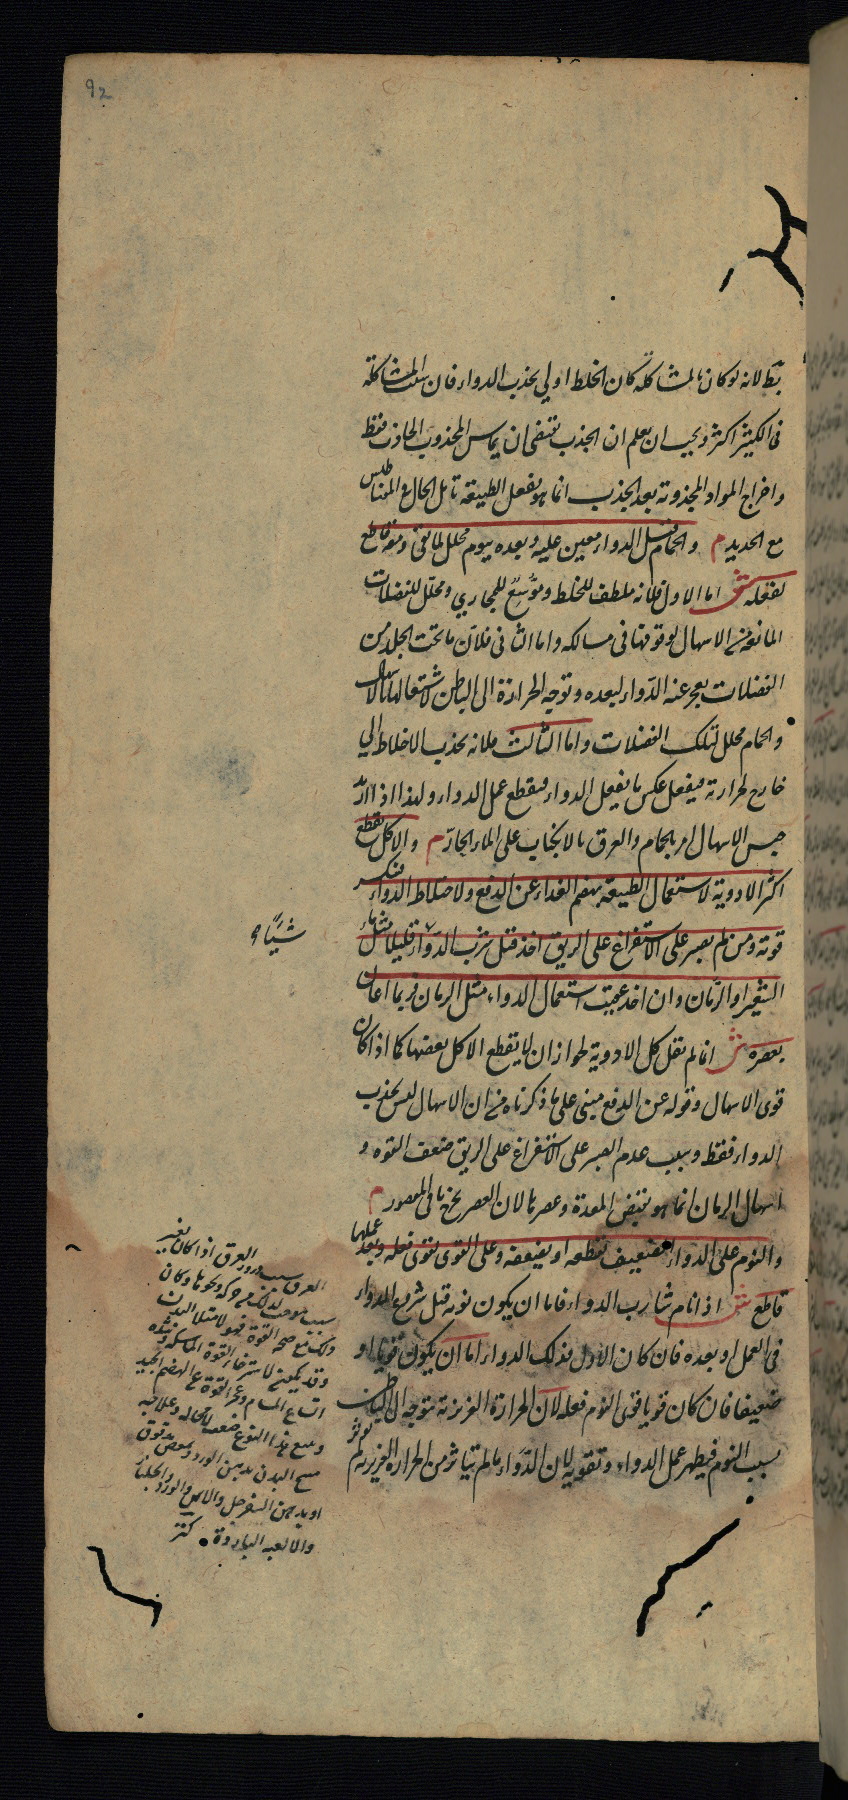 92
بط لانه لو كان بالمشاكلة كان الخلط اولى بجذب الدواء فان المشاكلة
فى الكثير اكثر ويجب ان يعلم ان الجذب يقتضى ان يماس المجذوب الجاذب فقط
واخراج المواد المجذوبة بعد الجذب انما هو بفعل الطبيعة تأمل الحال فى المغناطيس
مع الحديد م والحمام قبل الدواء معين عليه وبعده بيوم محلل لما بقى ومعه قاطع
لفعله ش اما الاول فلانه ملطف للخلط وموسّع للمجاري ومحلل للفضلات
المانعة من الاسهال لوقوفها فى مسالكه واما الثانى فلان ما تحت الجلد من
الفضلات يعجز عنه الدواء لبعده وتوجه الحرارة الى الباطن لاشتغالها بالاسهال
والحمام محلل لتلك الفضلات واما الثالث فلانه يجذب الاخلاط الي
خارج لحرارته فيفعل عكس ما يفعل الدواء فيقطع عمل الدواء ولهذا اذا اريد
حبس الاسهال امر بالحمام والعرق بالانكباب على الماء الحار م والاكل يقطع
اكثر الادوية لاشتغال الطبيعة بهضم الغذاء عن الدفع ولاختلاط الدواء فتنكسر
قوته ومن لم يصبر على الاستفراغ على الريق اخذ قبل شرب الدواء قليلا مثل ماء
شيئا
الشعير او الرمان وان اخذ عقيب استعمال الدواء مثل الرمان فربما اعان
بعصره ش انما لم يقل كل الادوية لجواز ان لا يقطع الاكل بعضها كما اذا كان
قوى الاسهال وقوله عن الدفع مبنى على ما ذكرناه من ان الاسهال ليس بجذب
الدواء فقط وسبب عدم الصبر على الاستفراغ على الريق ضعف القوة و
اسهال الرمان انما هو بقبض المعدة وعصرها لان العصر يخرج ما فى المعصور م
والنوم على الدواء الضعيف يقطعه او يضعفه وعلى القوى يقوى فعله وبعد عملها
قاطع ش اذا نام شارب الدواء فاما ان يكون نومه قبل شروع الدواء
فى العمل او بعده فان كان الاول فذلك الدواء اما ان يكون قويا او
ضعيفا فان كان قويا قوى النوم فعله لان الحرارة الغريزية تتوجه الى الباطن
بسبب النوم فيظهر عمل الدواء وتقويه لان الدواء ما لم يتاثر من الحرارة الغريزية لم يوثر
العرق اذا كان بغير
مسح البدن بدهن الورد
او بدهن السفرجل والاس والورد والجلنار
والالعبه الباردة